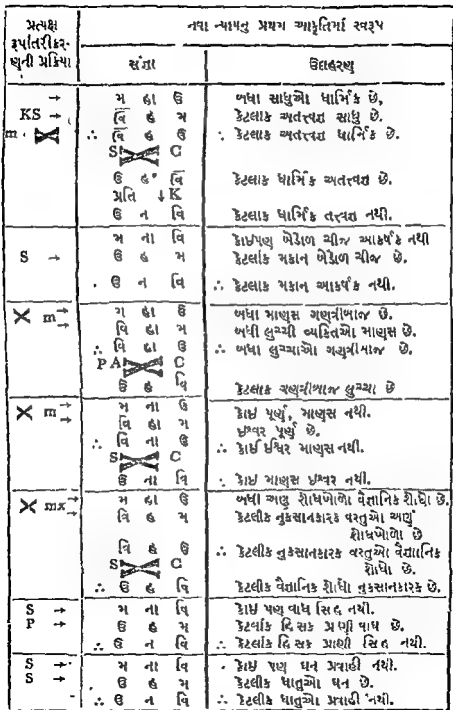 પ્રત્યક્ષ નવા ન્યાયનુ પ્રથમ આકૃતિમાં સ્વરૂપ
રૂપાંતરીકર-
ણુની પ્રક્રિયા સંજ્ઞા ઉદાહરણ
→ મ હા ઉ બધા સાધુઓ ધાર્મિક છે,
KS → વિ હ મ કેટલાક અતત્ત્વજ્ઞ સાધુ છે.
m ∴ વિ હ ઉ ∴ કેટલાક અતત્ત્વજ્ઞ ધાર્મિક છે.
S C
ઉ હ વિ કેટલાક ધાર્મિક અતત્ત્વજ્ઞ છે.
પ્રતિ ↓K
ઉ ન વિ કેટલાક ધાર્મિક તત્ત્વજ્ઞ નથી.
મ ના વિ કોઇપણ બેડોળ ચીજ આકર્ષક નથી
S → ઉ હ મ કેટલાંક મકાન બેડોળ ચીજ છે.
ઉ ન વિ ∴ કેટલાક મકાન આકર્ષક નથી.
મ હા ઉ બધા માણસ ગણત્રીબાજ છે.
m → વિ હા મ બધી લુચ્ચી વ્યક્તિઓ માણસ છે.
∴ વિ હા ઉ ∴ બધા લુચ્ચાઓ ગણત્રીબાજ છે.
PA C
ઉ હ વિ કેટલાક ગણત્રીબાજ લુચ્ચા છે
મ ના ઉ કોઇ પૂર્ણ, માણસ નથી.
m → વિ હા મ ઇશ્વર પૂર્ણ છે.
∴ વિ ના ઉ ∴ કોઈ ઇશ્વર માણસ નથી.
S C
ઉ ના વિ ∴ કોઇ માણસ ઇશ્વર નથી.
મ હા ઉ બધી અણુ શોધખોળો વૈજ્ઞાનિક શોધો છે.
mx → વિ હ મ કેટલીક નુકસાનકારક વસ્તુઓ અણુ
શોધખોળો છે
વિ હ ઉ ∴ કેટલીક નુકસાનકારક વસ્તુઓ વૈજ્ઞાનિક
S C શોધો છે.
∴ ઉ હ વિ કેટલીક વૈજ્ઞાનિક શોધો નુકસાનકારક છે.
S → મ ના વિ કોઇ પણ વાઘ સિંહ નથી.
P → ઉ હ મ કેટલાંક હિંસક પ્રાણી વાઘ છે.
∴ ઉ ન વિ ∴ કેટલાંક હિંસક પ્રાણી સિંહ નથી.
S → મ ના વિ કોઇ પણ ઘન પ્રવાહી નથી.
S → ઉ હ મ કેટલીક ધાતુઓ ઘન છે.
∴ ઉ ન વિ ∴ કેટલીક ધાતુઓ પ્રવાહી નથી.